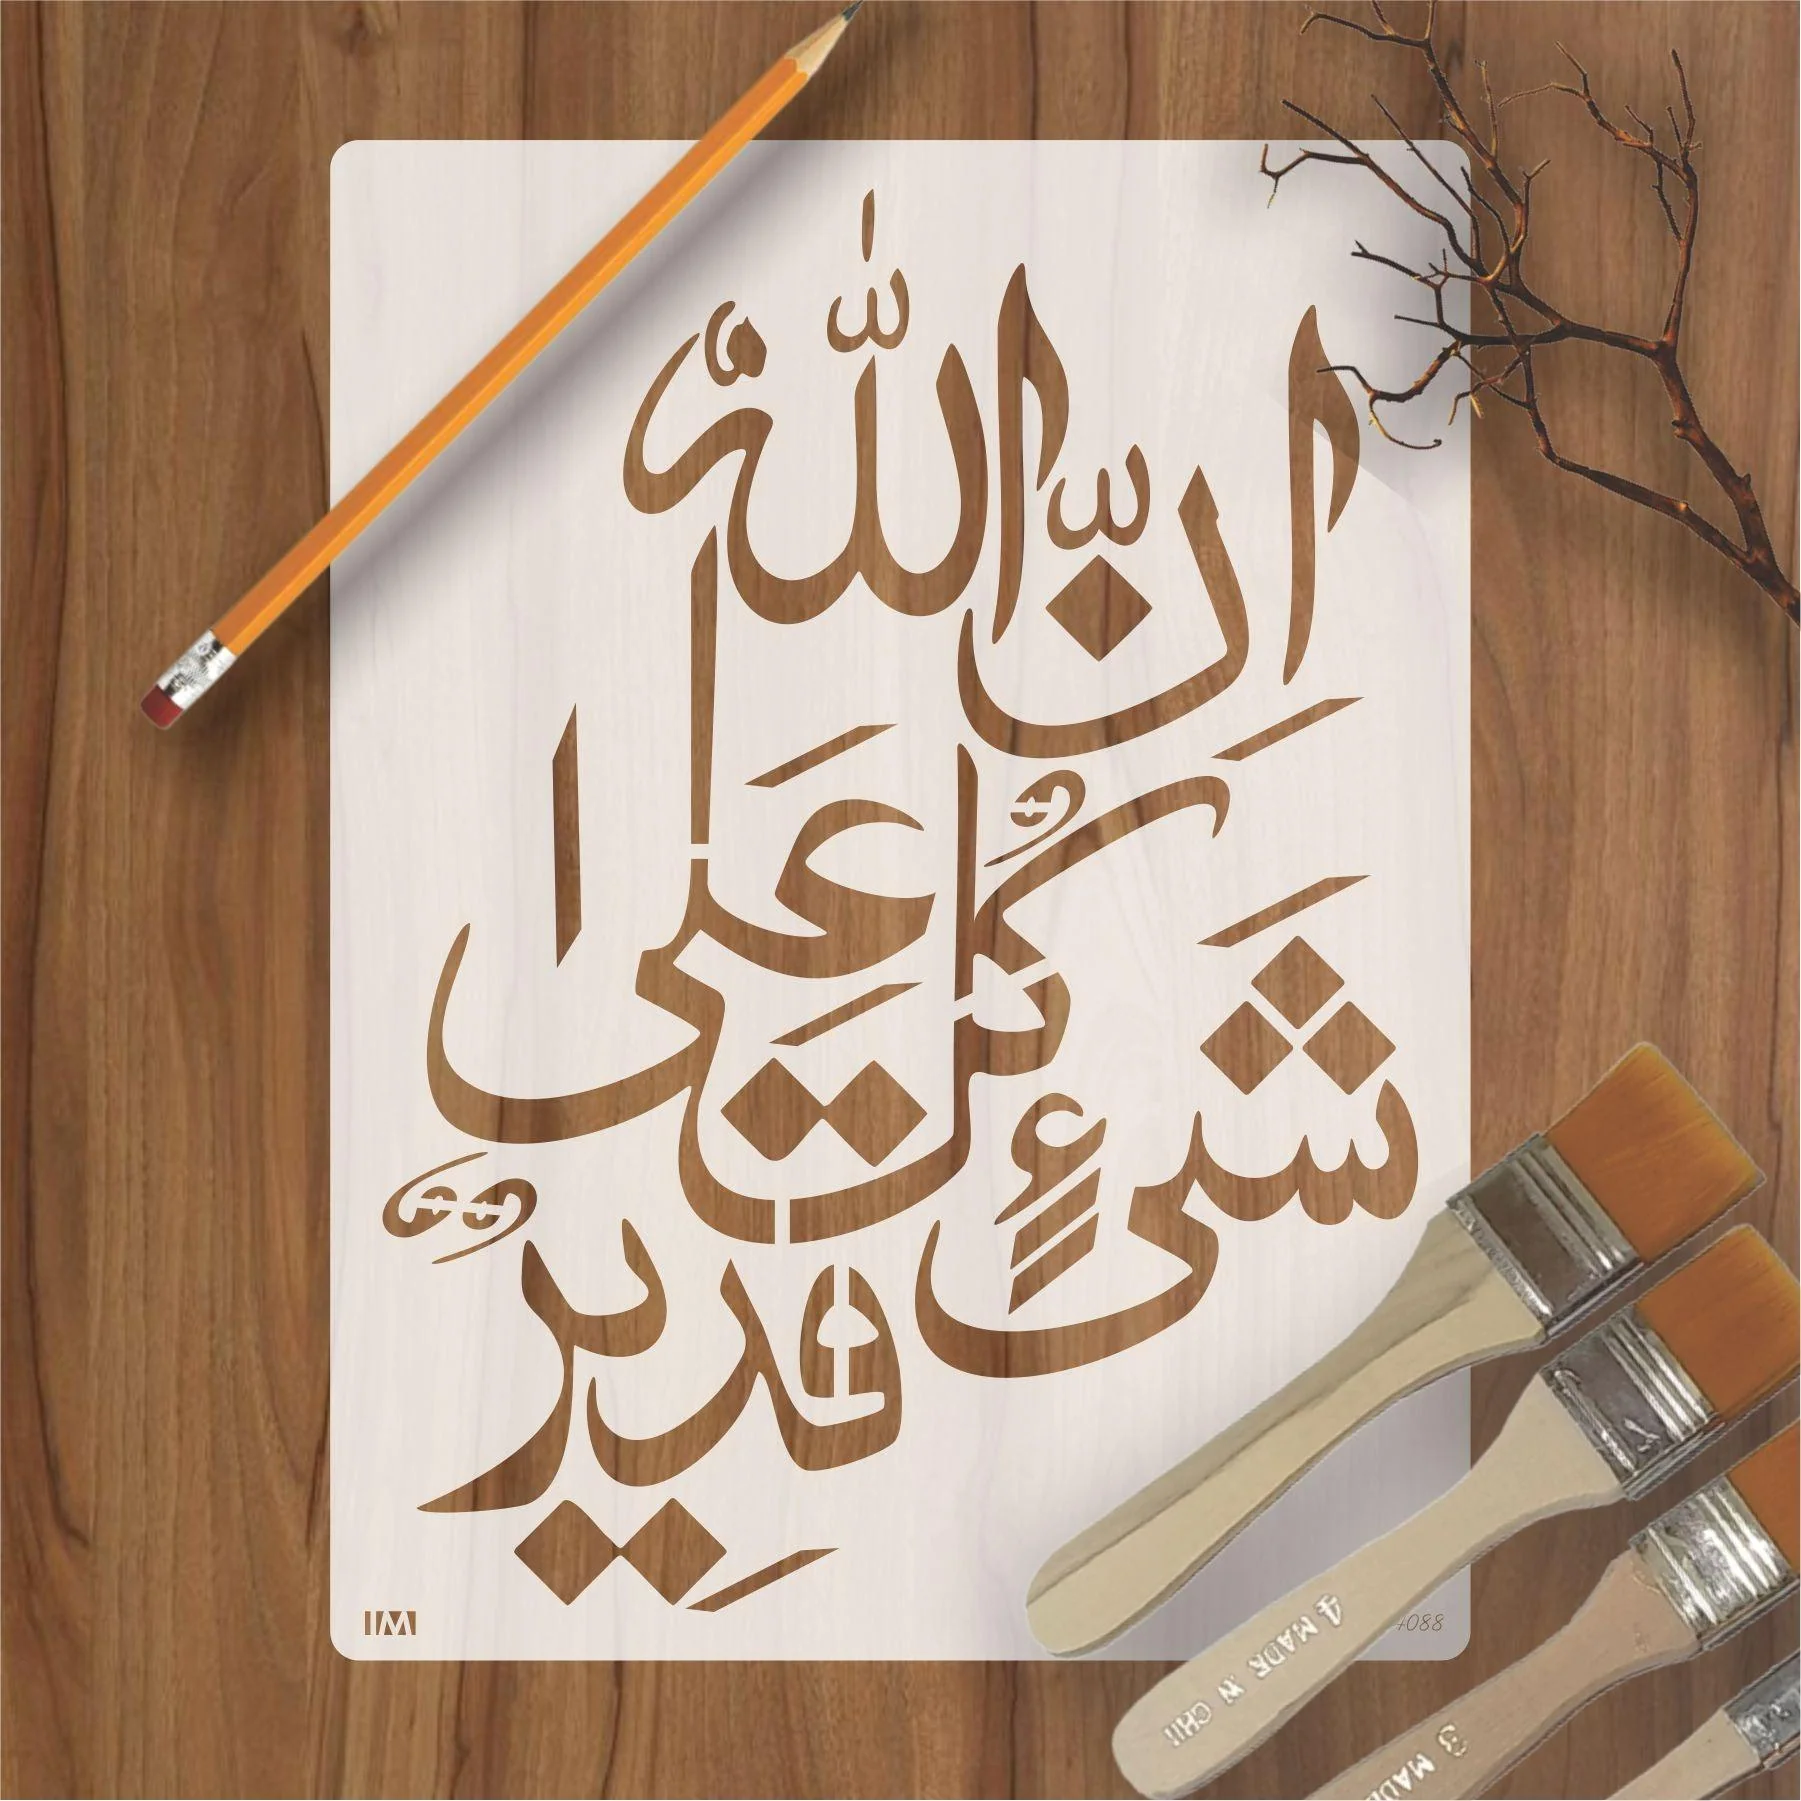 اِنَّ اللّٰهَ
عَلىٰ كُلِّ
شَىْءٍ قَدِيرٌ
IM
088
4 MADE IN CHI
3 MADE